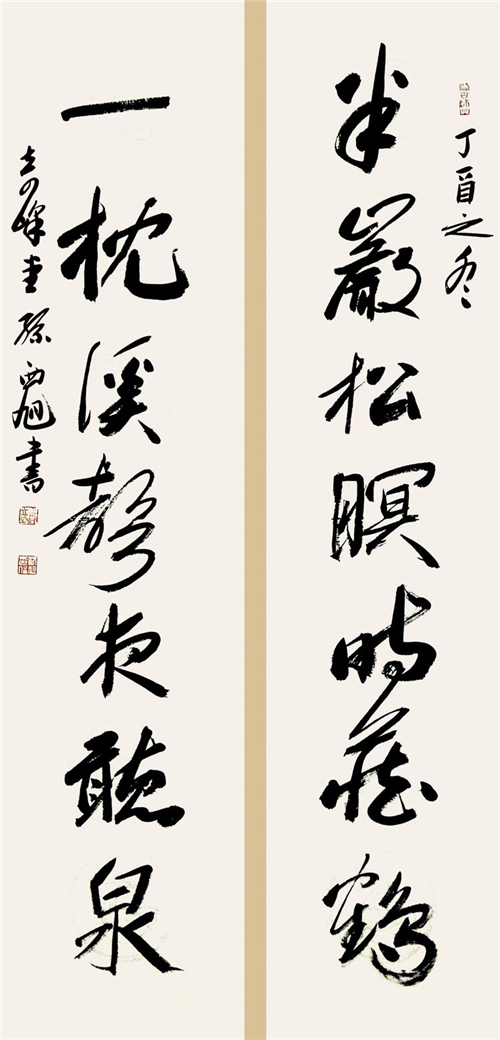 丁酉之冬
半巖松暝時藏鶴
一枕溪聲夜聽泉
峰堂孫西旭書